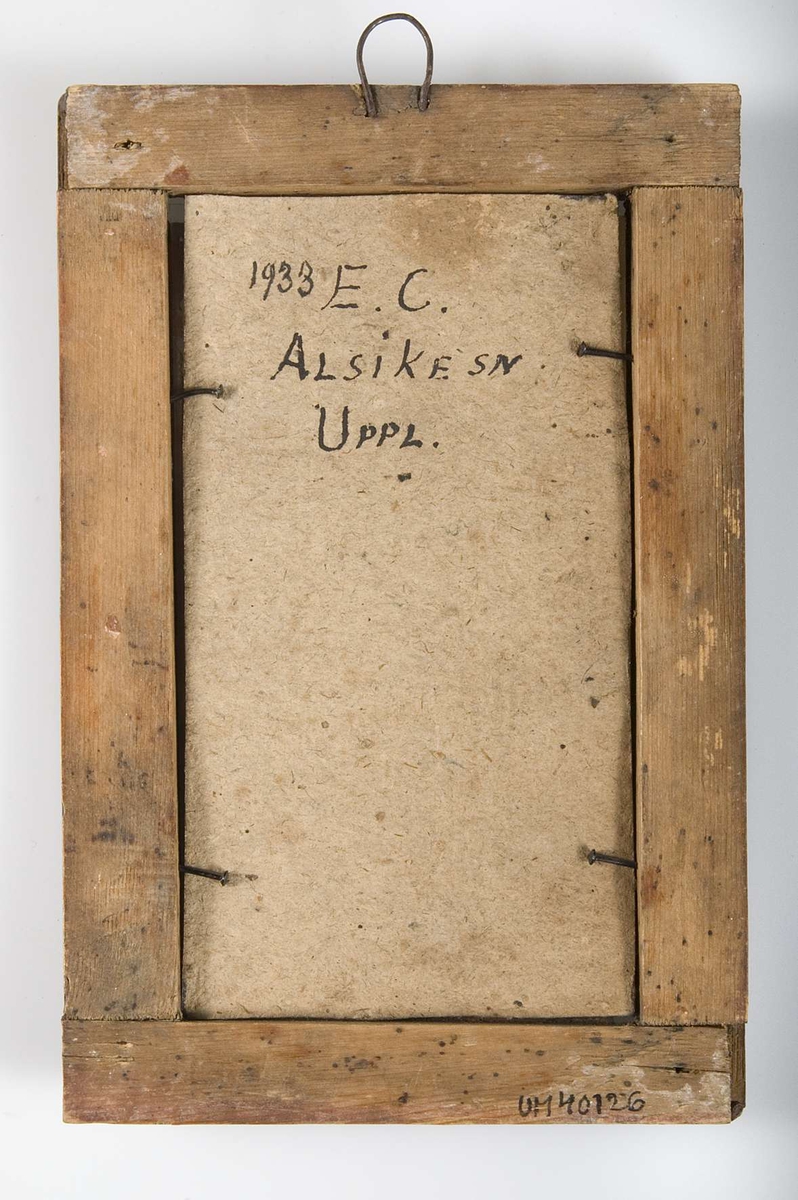 1933 E. C.
ALSIKE SN.
UPPL.
UM40126